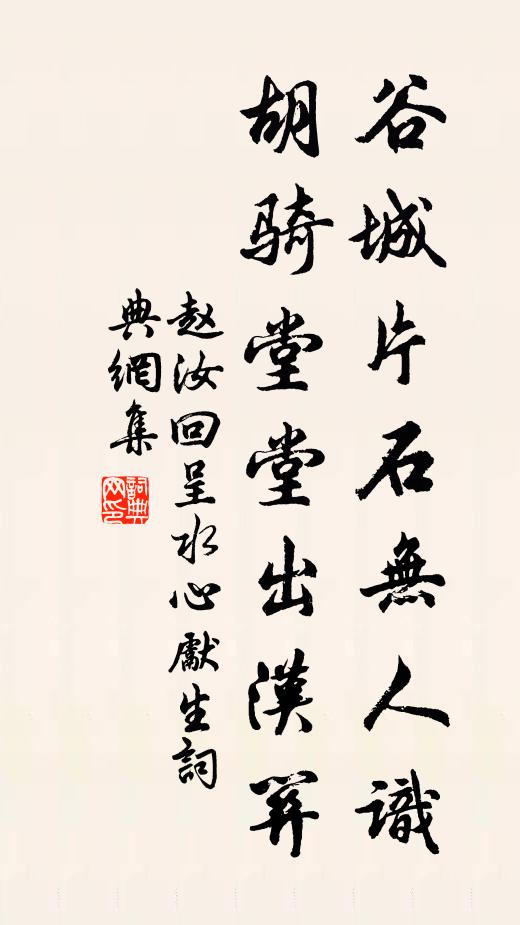 谷城片石無人識
胡骑堂堂出漢
赵汝回呈水心獻生詞
典網集
詞典网印